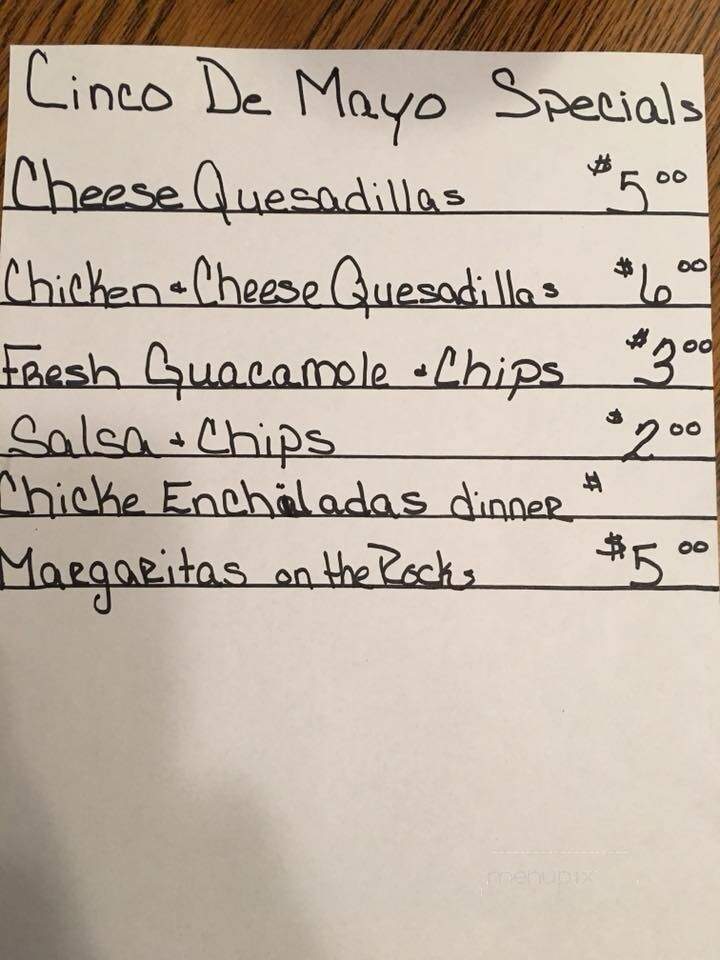 Cinco De Mayo Specials
Cheese Quesadillas $5.00
Chicken & Cheese Quesadillas $6.00
Fresh Guacamole & Chips $3.00
Salsa & Chips $2.00
Chicke Enchiladas dinner $
Margaritas on the Rocks $5.00
menupix